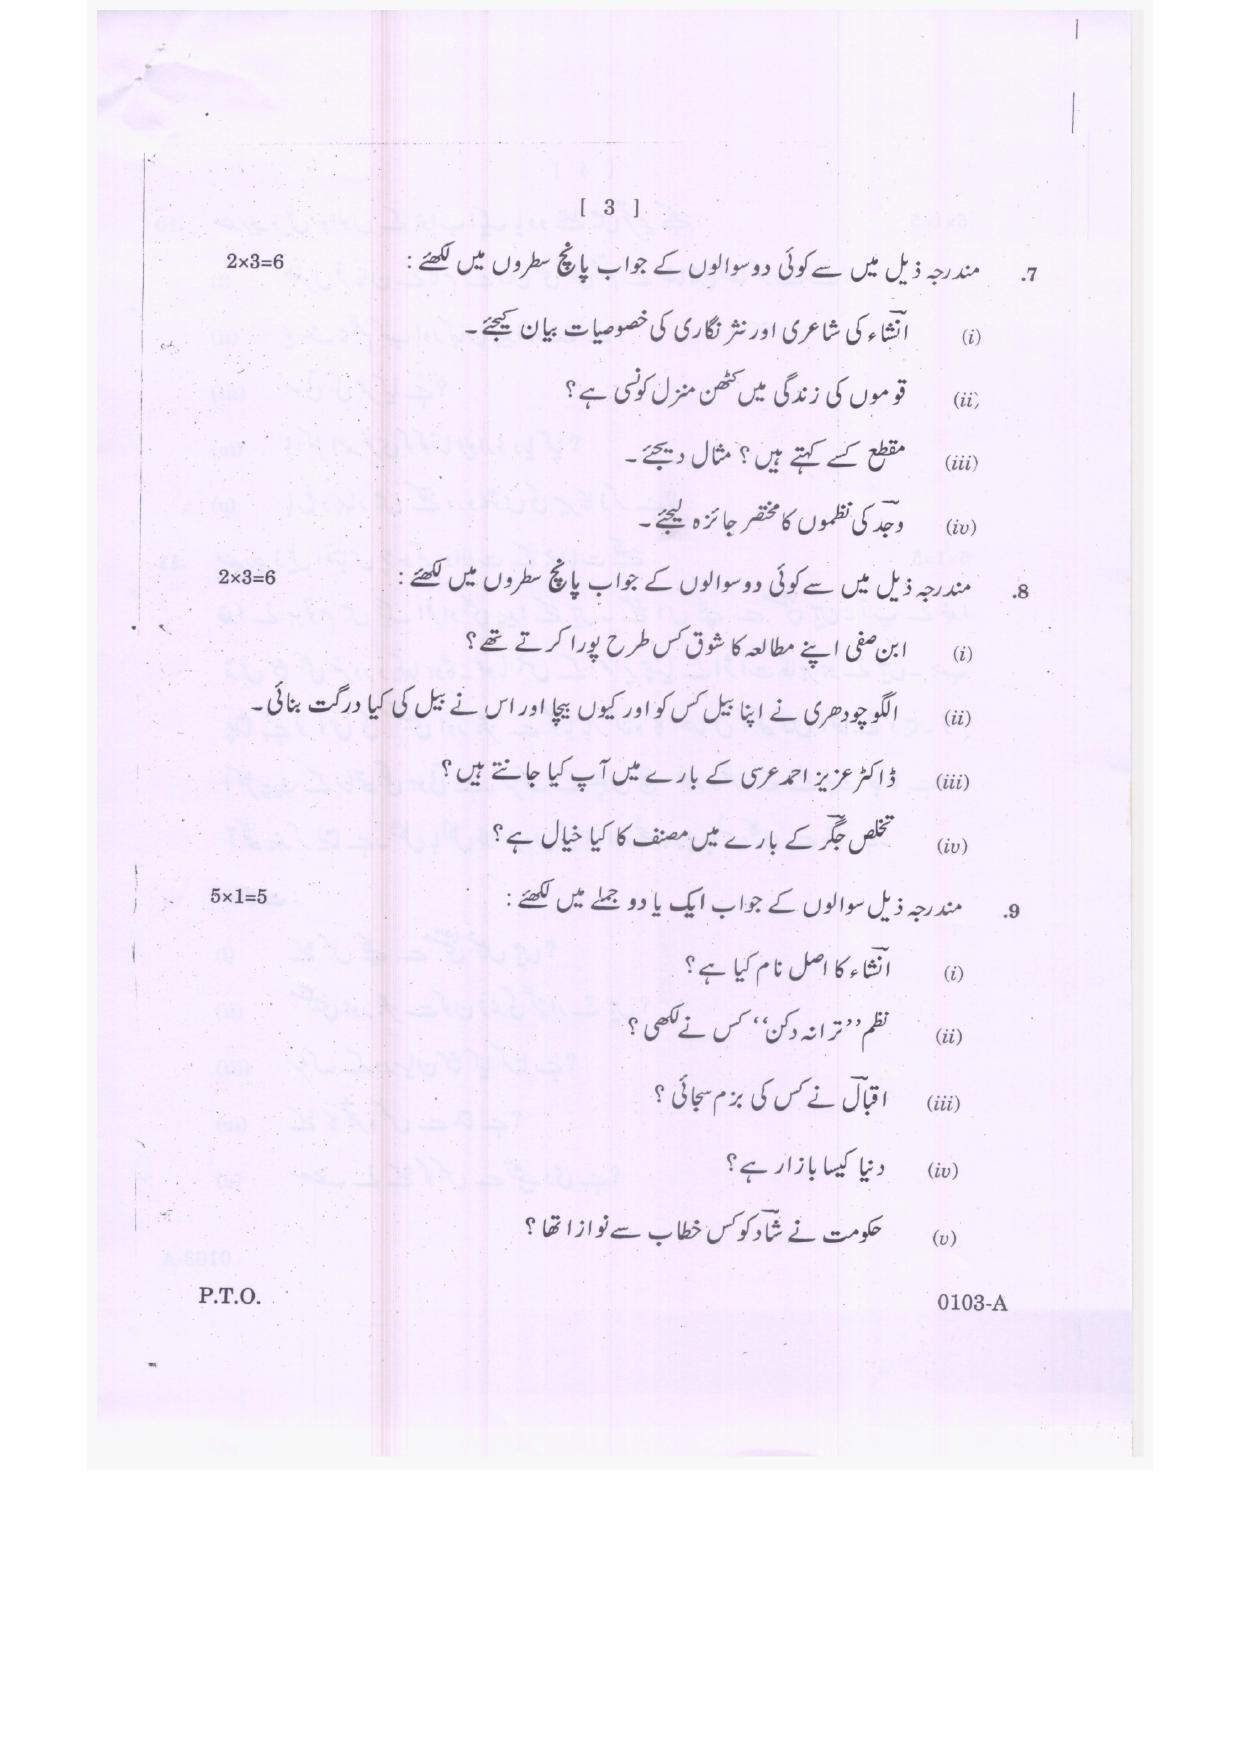 [ 3 ]
7. مندرجہ ذیل میں سے کوئی دو سوالوں کے جواب پانچ سطروں میں لکھئے : 2×3=6
(i) انشاء کی شاعری اور نثر نگاری کی خصوصیات بیان کیجئے۔
(ii) قوموں کی زندگی میں کٹھن منزل کونسی ہے؟
(iii) مقطع کسے کہتے ہیں؟ مثال دیجئے۔
(iv) وجد کی نظموں کا مختصر جائزہ لیجئے۔
8. مندرجہ ذیل میں سے کوئی دو سوالوں کے جواب پانچ سطروں میں لکھئے : 2×3=6
(i) ابن صفی اپنے مطالعہ کا شوق کس طرح پورا کرتے تھے؟
(ii) الگو چودھری نے اپنا بیل کس کو اور کیوں بیچا اور اس نے بیل کی کیا درگت بنائی۔
(iii) ڈاکٹر عزیز احمد عرسی کے بارے میں آپ کیا جانتے ہیں؟
(iv) تخلص جگر کے بارے میں مصنف کا کیا خیال ہے؟
9. مندرجہ ذیل سوالوں کے جواب ایک یا دو جملے میں لکھئے : 5×1=5
(i) انشاء کا اصل نام کیا ہے؟
(ii) نظم ’’ترانہ دکن‘‘ کس نے لکھی؟
(iii) اقبال نے کس کی بزم سجائی؟
(iv) دنیا کیسا بازار ہے؟
(v) حکومت نے شاد کو کس خطاب سے نوازا تھا؟
0103-A P.T.O.